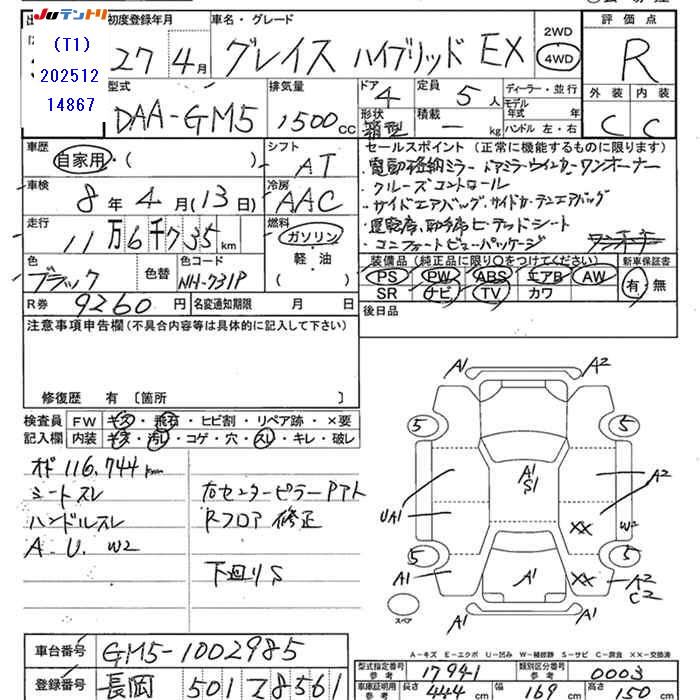 JUテントリ
(T1)
202512
14867
初度登録年月
車名・グレード
評価点
27年4月
グレイス ハイブリッド EX
2WD
4WD
R
型式
排気量
ドア
定員
ディーラー・並行
外装 内装
DAA-GM5
1500cc
4
5人
モデル年式 年
形状
積載
箱型
kg
ハンドル 左・右
C C
車歴
シフト
セールスポイント（正常に機能するものに限ります）
自家用・( )
AT
・電動格納ミラー ドアミラーウインカー ワンオーナー
車検
冷房
・クルーズコントロール
8年4月(13日)
AAC
・サイドエアバッグ、サイドカーテンエアバッグ
走行
燃料
・運転席、助手席ヒーテッドシート
11万6千735km
ガソリン
・コンフォートビューパッケージ
軽・油
( )
色
色替
色コード
装備品（純正品に限り○をつけてください）
新車保証書
ブラック
NH-731P
PS PW ABS エアB AW
有・無
SR ナビ TV カワ
R券
9260円
名変通知期限 月 日
後日品
注意事項申告欄（不具合内容等は具体的に記入して下さい）
修復歴 有〔箇所
検査員記入欄
FW キズ・飛石・ヒビ割・リペア跡・×要
内装 キズ・汚レ・コゲ・穴・スレ・キレ・破レ
オド 116,744km
シートスレ
右センターピラーPアト
ハンドルスレ
Rフロア修正
A.U. W2
下回りS
A1 A2
5 5
A1
S1
A2
UA1
XX
W2
5 5
A1
A1
XX
A2
C2
スペア
A1 A1
A-キズ E-エクボ U-凹み W-補修跡 S-サビ C-腐食 XX-交換済
車台番号
GM5-1002985
型式指定番号 参考
17941
類別区分番号 参考
0003
登録番号
長岡 501 ワ 8561
車庫証明用 参考
長さ 444cm
幅 169cm
高さ 150cm